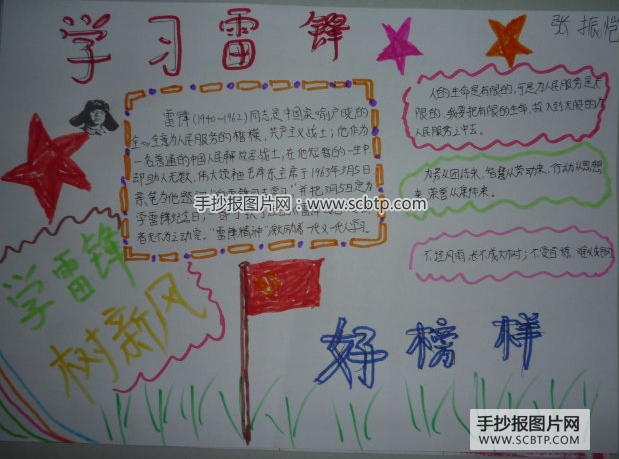 学习雷锋
张振恺
雷锋(1940~1962)同志是中国家喻户晓的
全心全意为人民服务的楷模,共产主义战士;他作为
一名普通的中国人民解放军战士,在他短暂的一生中
却助人无数,伟大领袖毛泽东主席于1963年3月5日
亲笔为他题 并把3月5日定为
学雷锋纪念日;
者无不为之动容。"雷锋精神"激励着一代又一代人学习。
人的生命是有限的,可是为人民服务是无
限的,我要把有限的生命,投入到无限的为
人民服务之中去。
力量从团结来,智慧从劳动来,行动从思想
来,荣誉从集体来。
不经风雨,长不成大树;不受百炼,难以成钢
手抄报图片网:www.scbtp.com
学雷锋
树新风
好榜样
手抄报图片网
WWW.SCBTP.COM